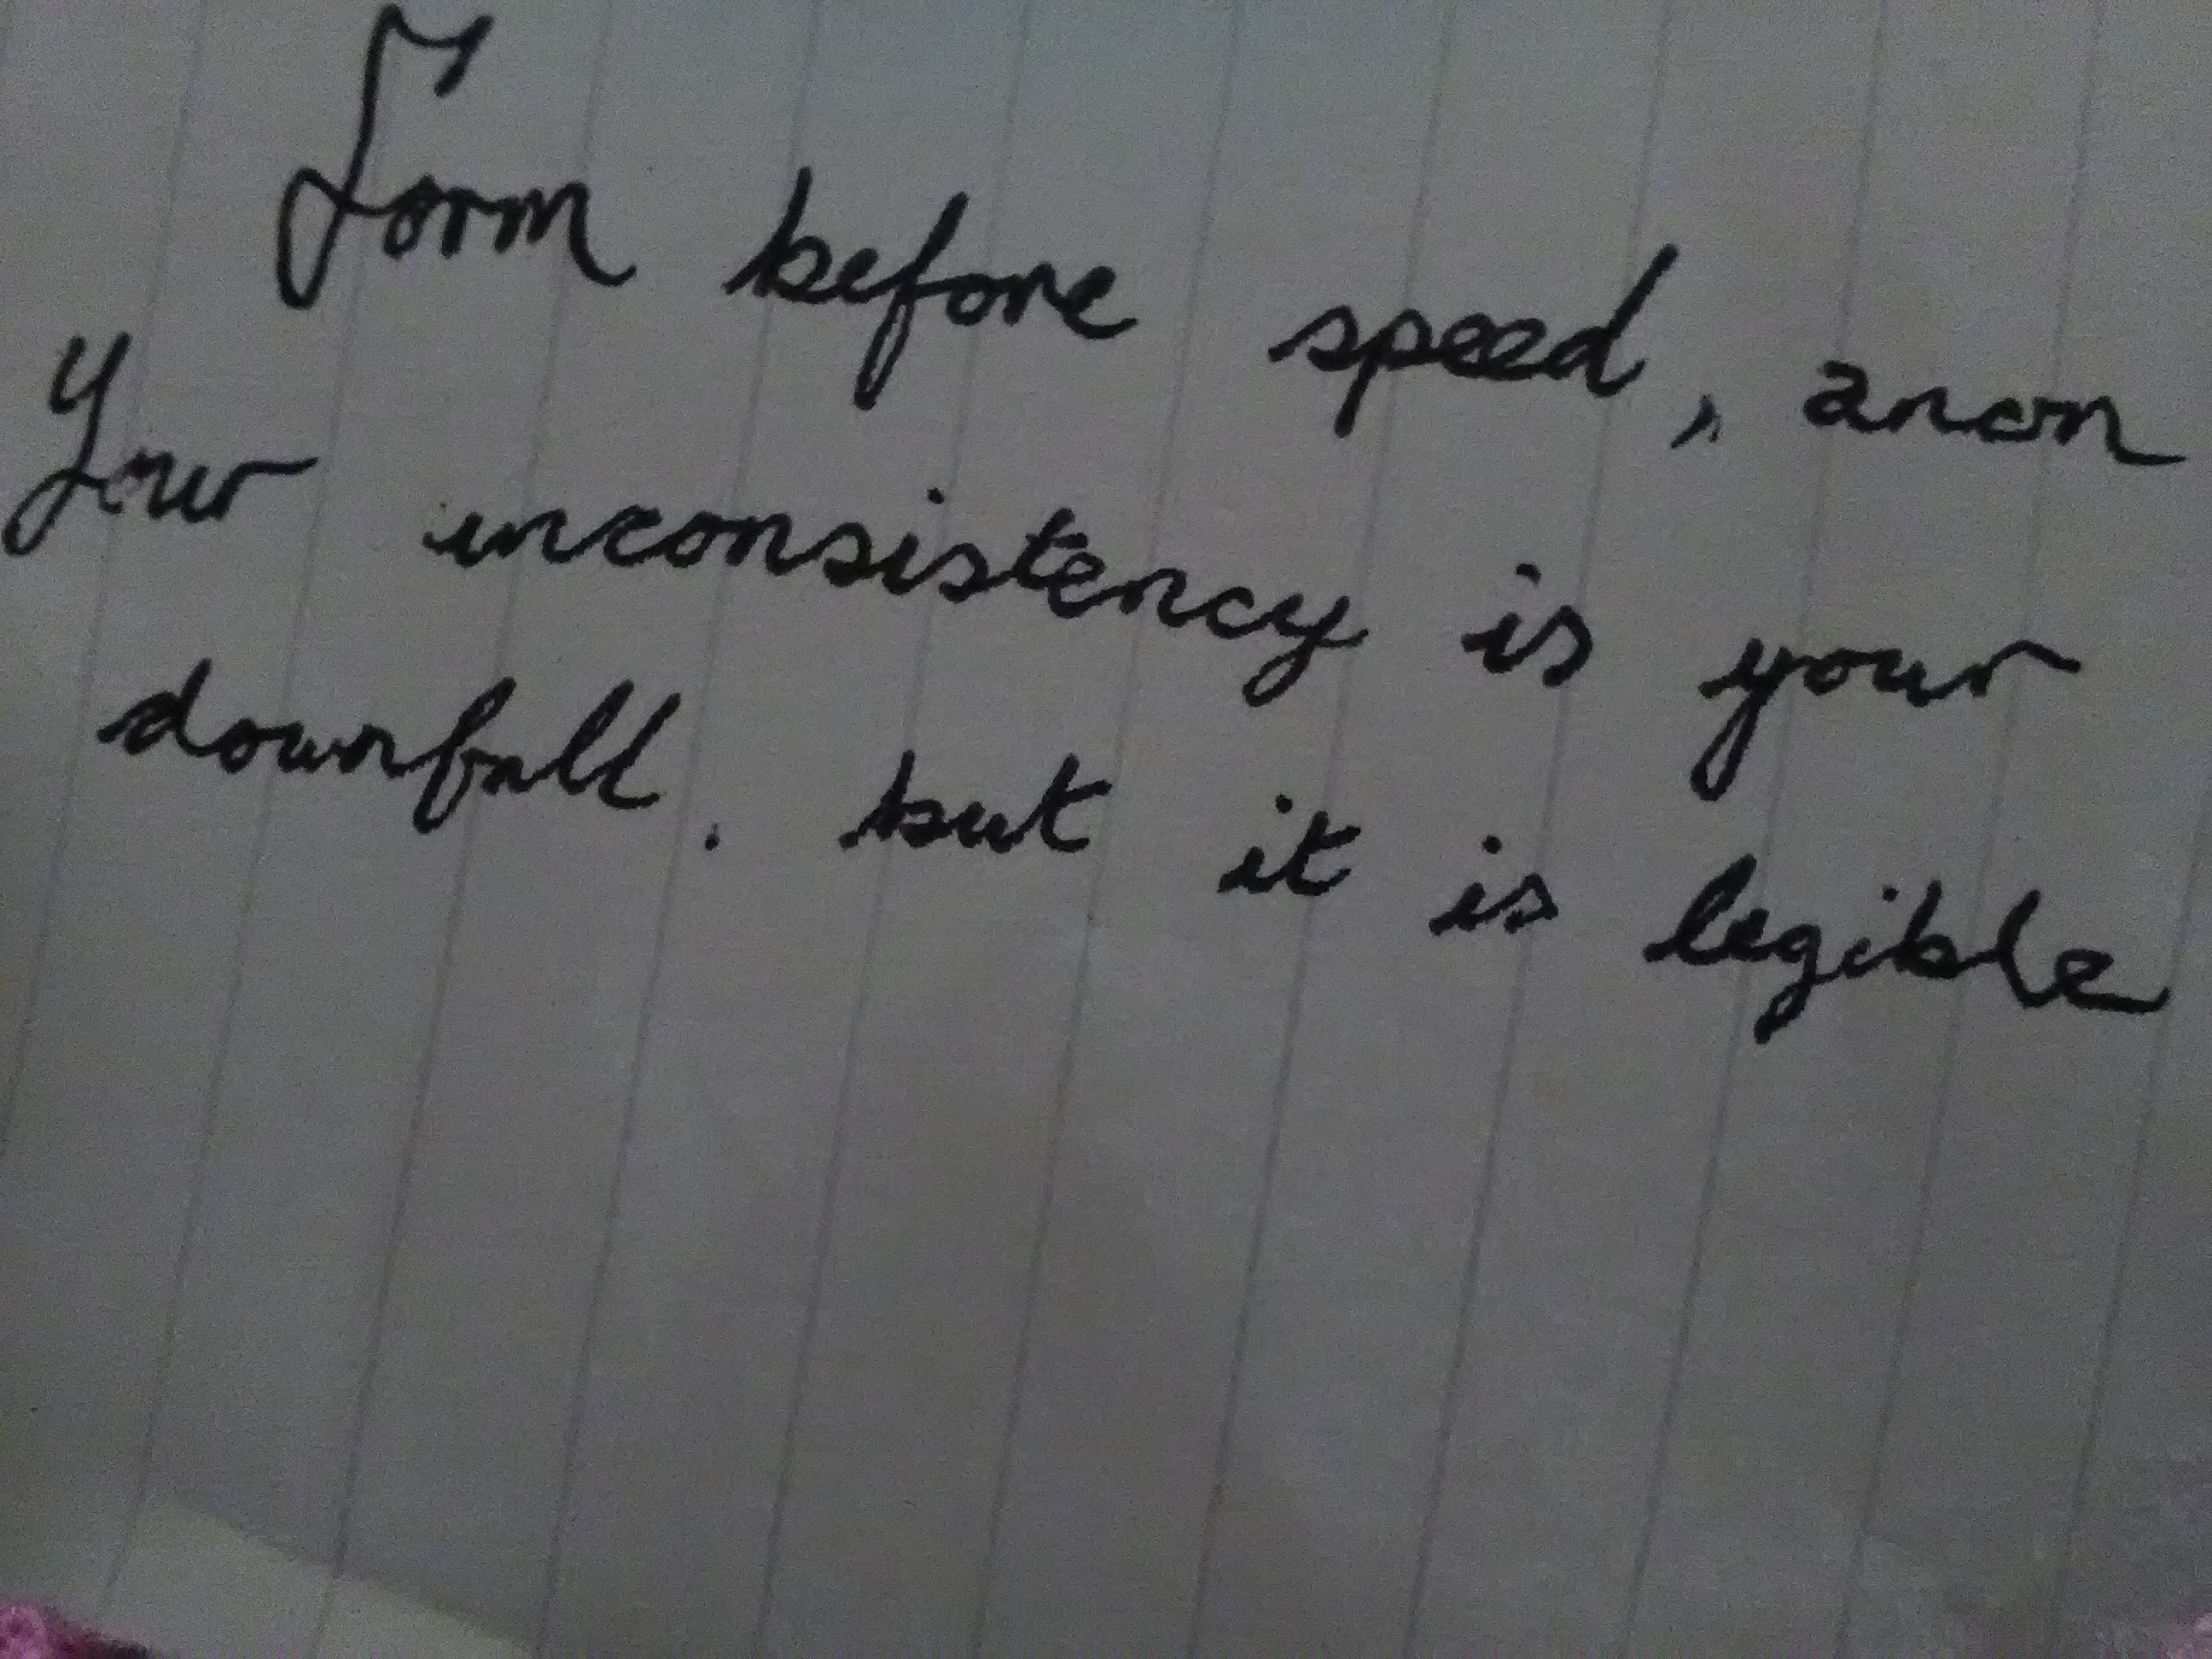 Form before speed, anon
Your inconsistency is your
downfall. but it is legible